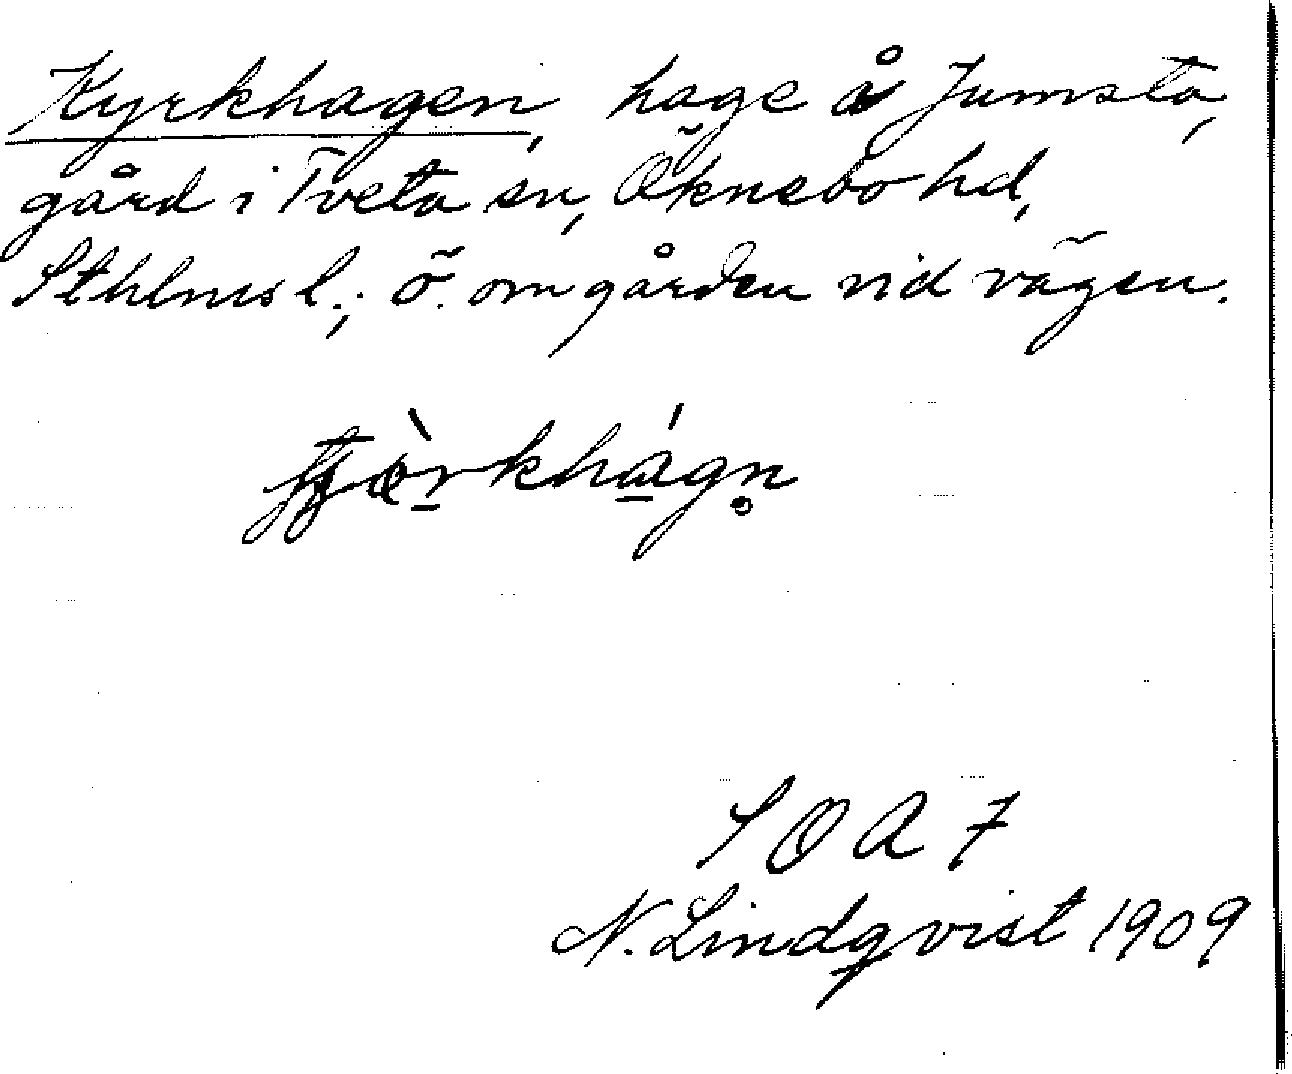 Kyrkhagen, hage å Jumsta,
gård i Tveta sn, Öknebo hd,
Sthlms l.; ö. om gården vid vägen.
S O A 7
N. Lindqvist 1909